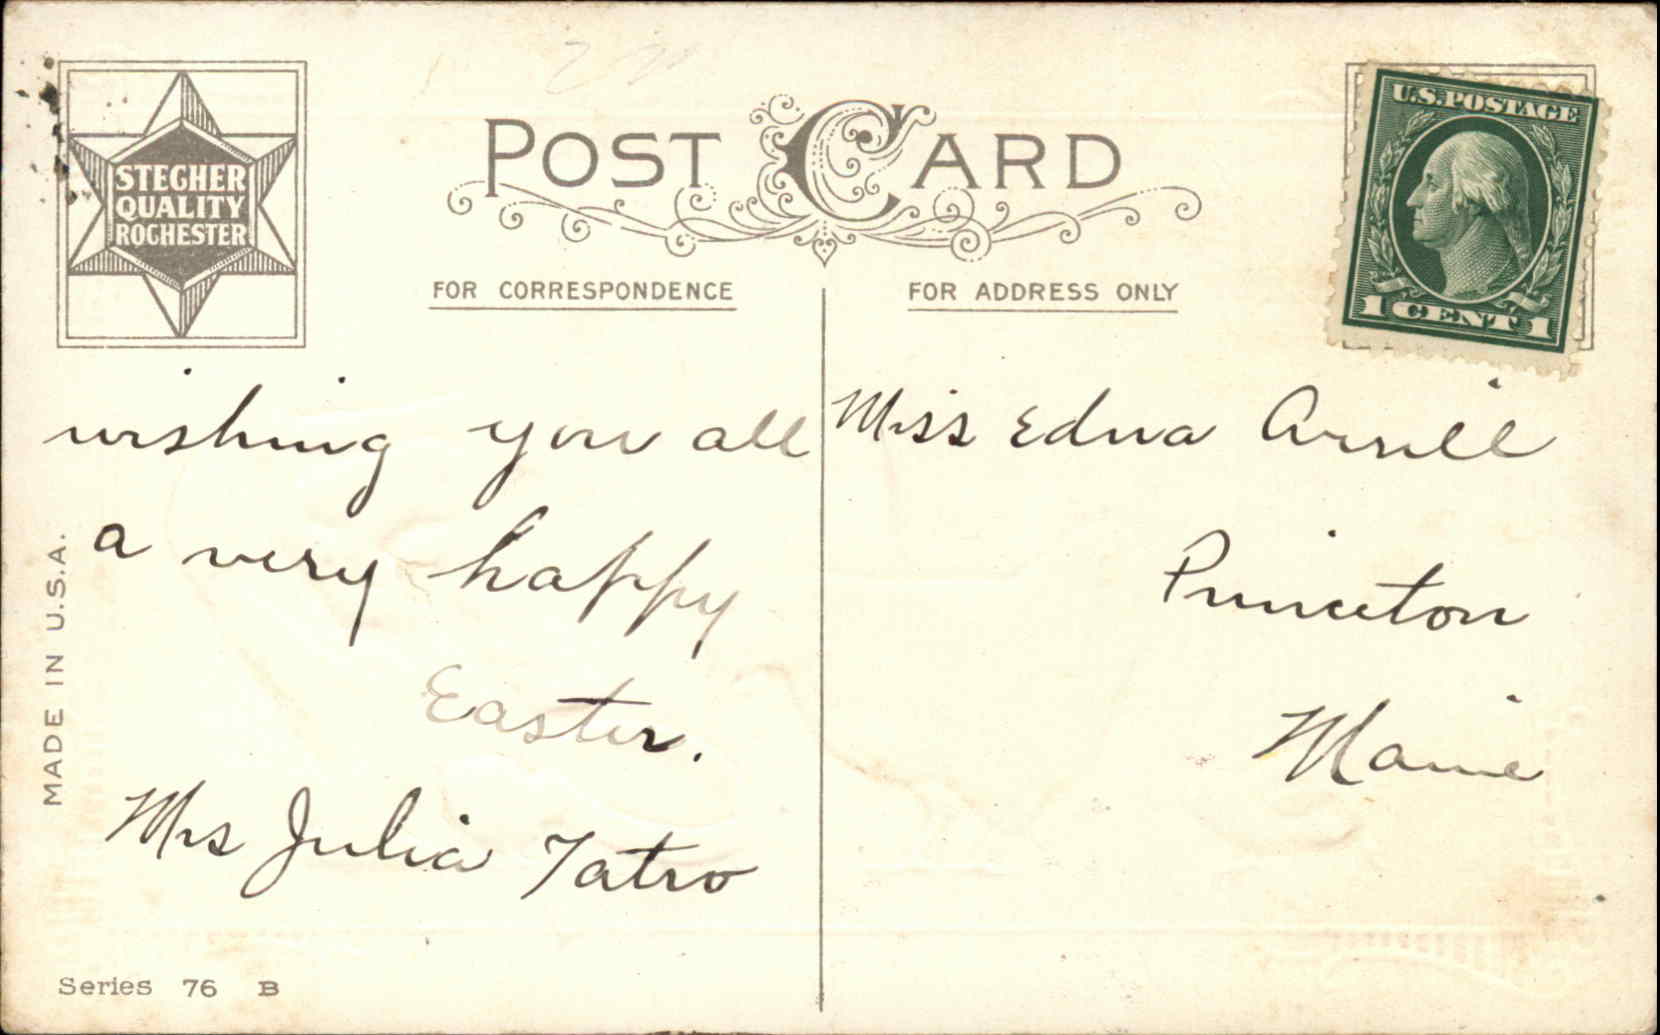 POST CARD
STECHER
QUALITY
ROCHESTER
U.S.POSTAGE
1 CENT 1
FOR CORRESPONDENCE
FOR ADDRESS ONLY
wishing you all
a very happy
Easter.
Mrs Julia Tatro
Miss Edna
Princeton
Maine
MADE IN U.S.A.
Series 76 B